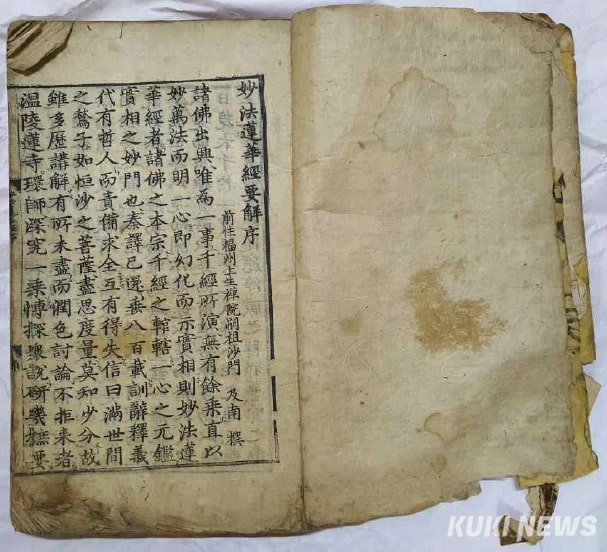 妙法蓮華經要解序
前住福州上生禪院嗣祖沙門 及南 撰
諸佛出興唯爲一事千經所演無有餘乘直以
妙萬法而明一心即幻化而示實相則妙法蓮
華經者諸佛之本宗千經之輨轄一心之元鑑
實相之妙門也秦譯已還垂八百載訓辭釋義
代有哲人而責備求全互有得失信曰滿世間
之鶖子如恒沙之菩薩盡思度量莫知少分故
雖多歷講解有所未盡而潤色討論不拒来者
温陵蓮寺環師深究一乘愽探衆說研幾摭要
KUKI NEWS